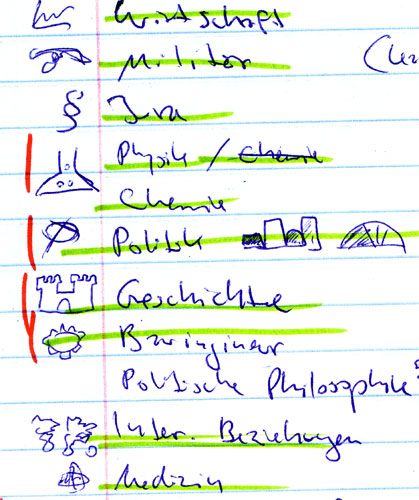 Wirtschaft
Militär
(
§ Jura
Physik / Chemie
Chemie
Politik
Geschichte
Bauringineur
Politische Philosophie
Inter. Beziehungen
Medizin